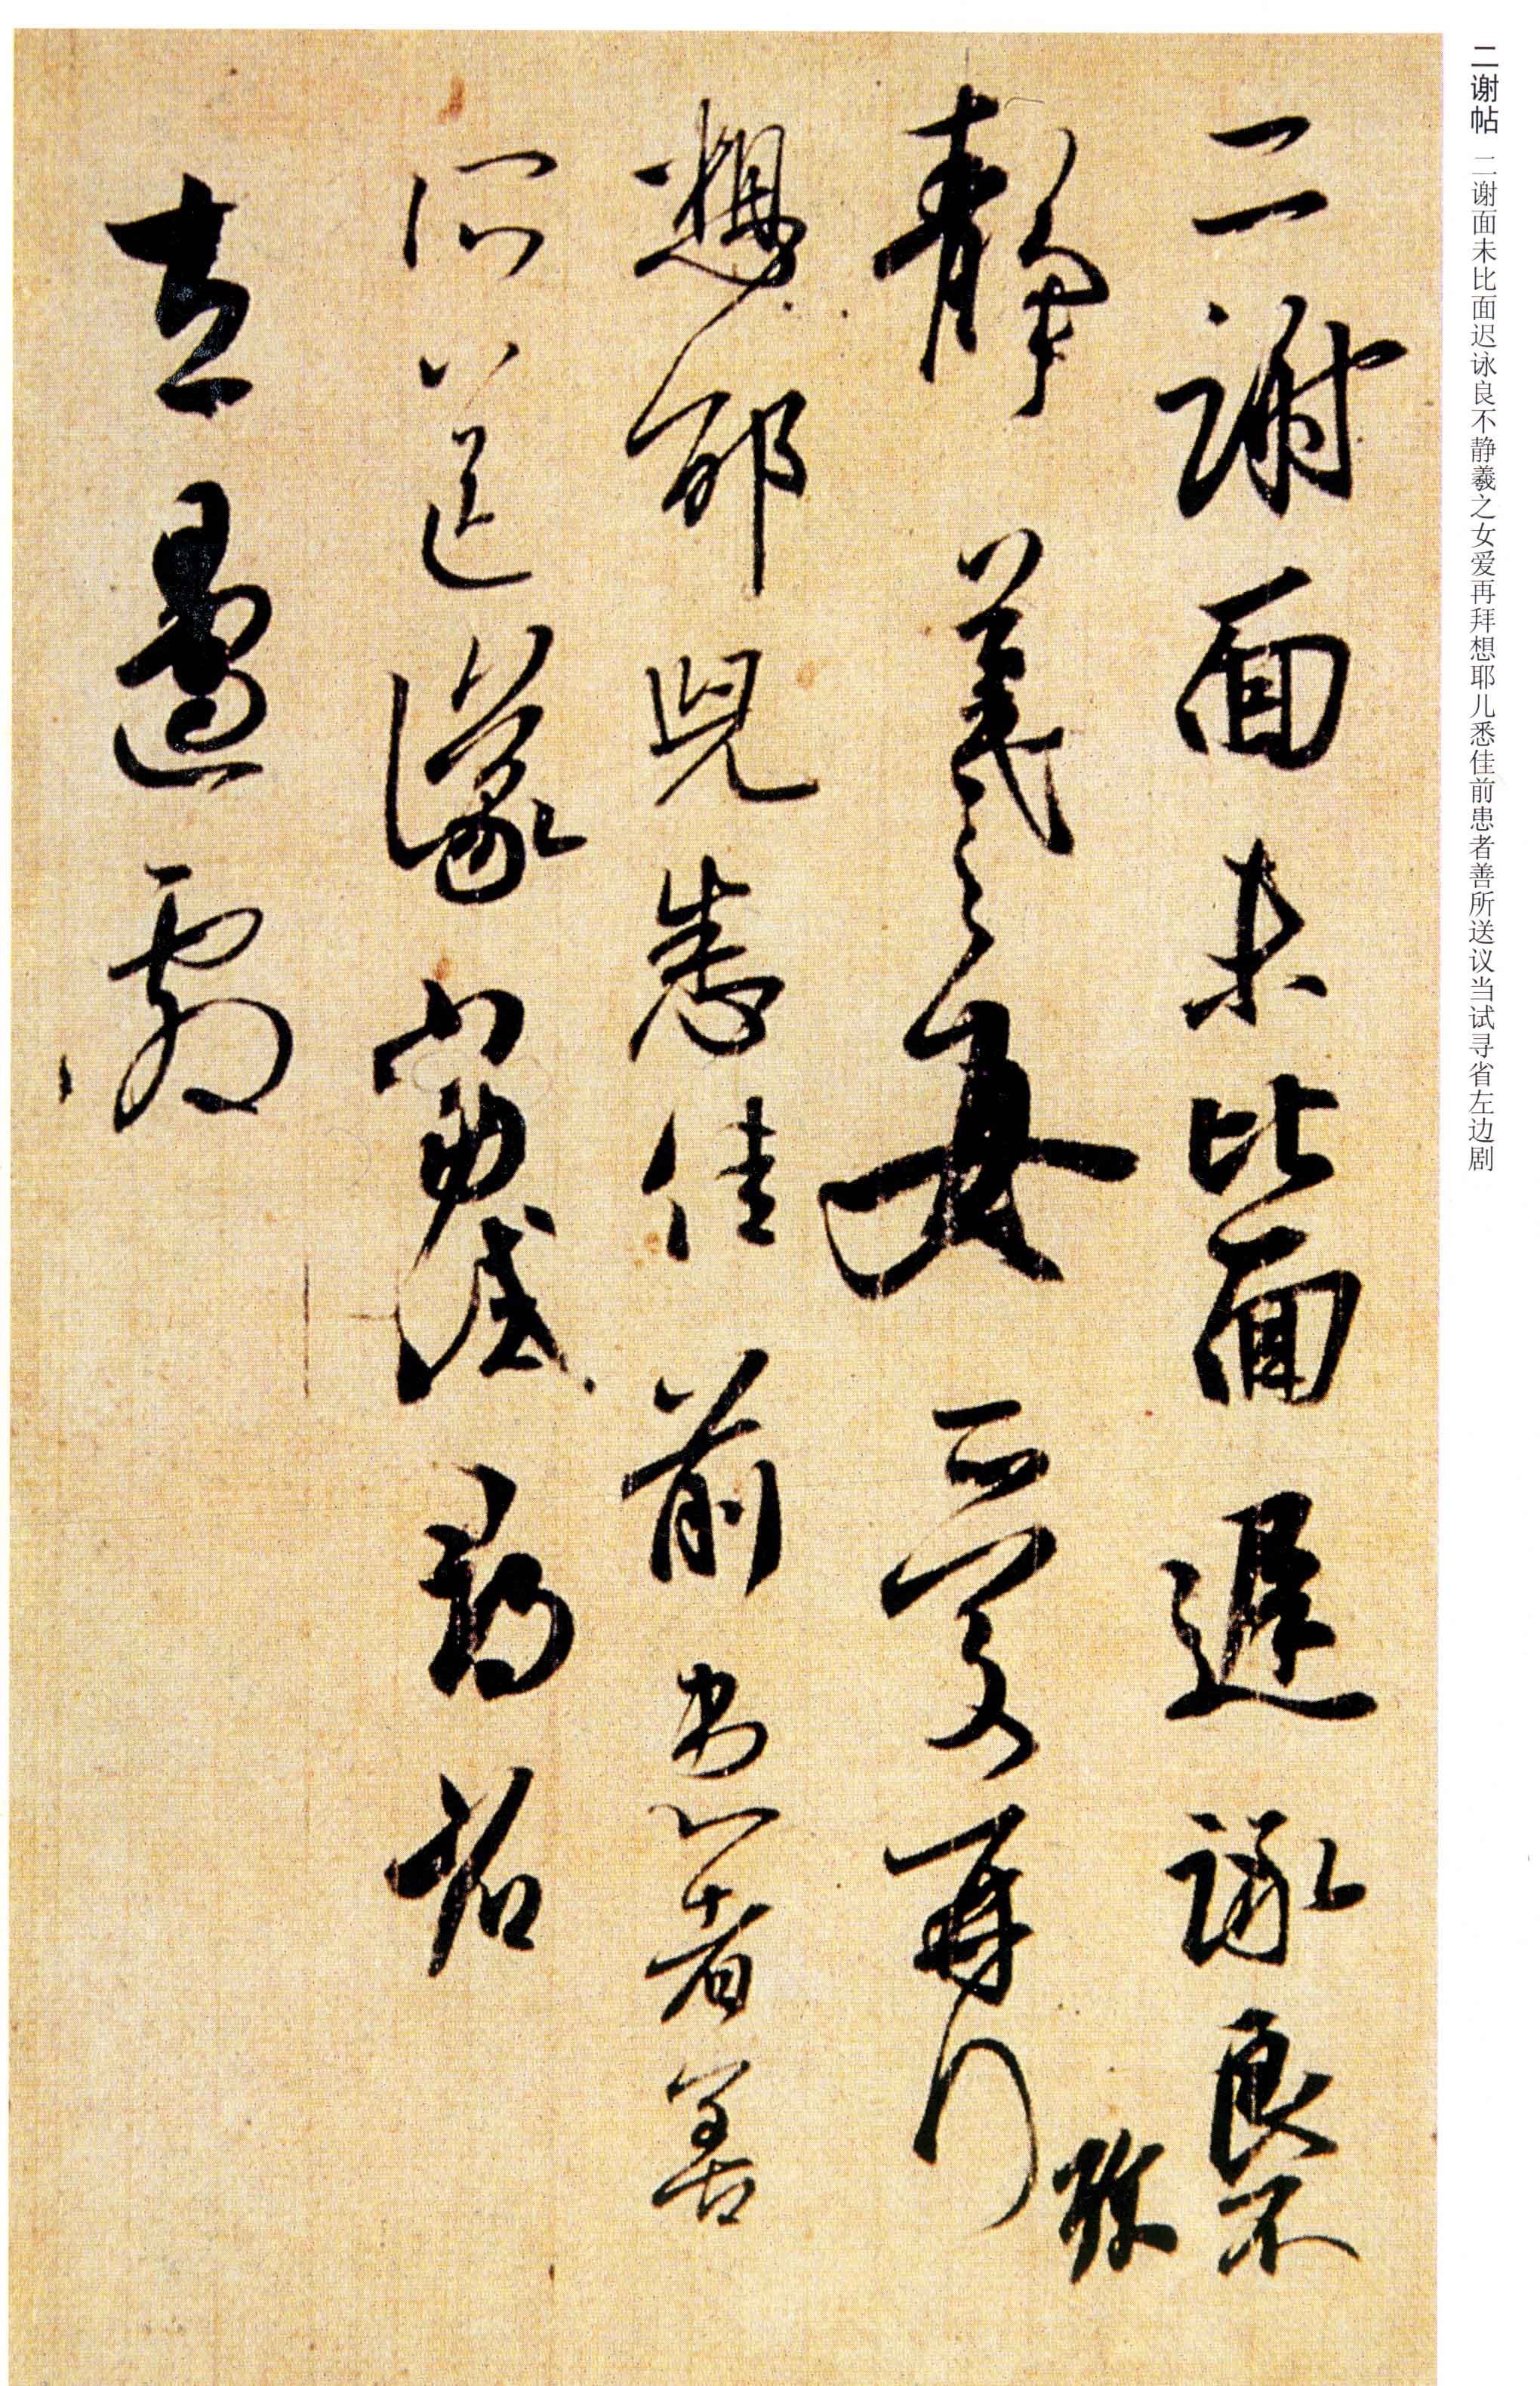 二谢帖 二谢面未比面迟诼良不静羲之女爱再拜想耶儿悉佳前患者善所送议当试寻省左边剧
二謝面未比面遲詠良不
靜羲之女愛再拜
珍
想耶兒悉佳前患者善
所送議當試尋省
左邊劇